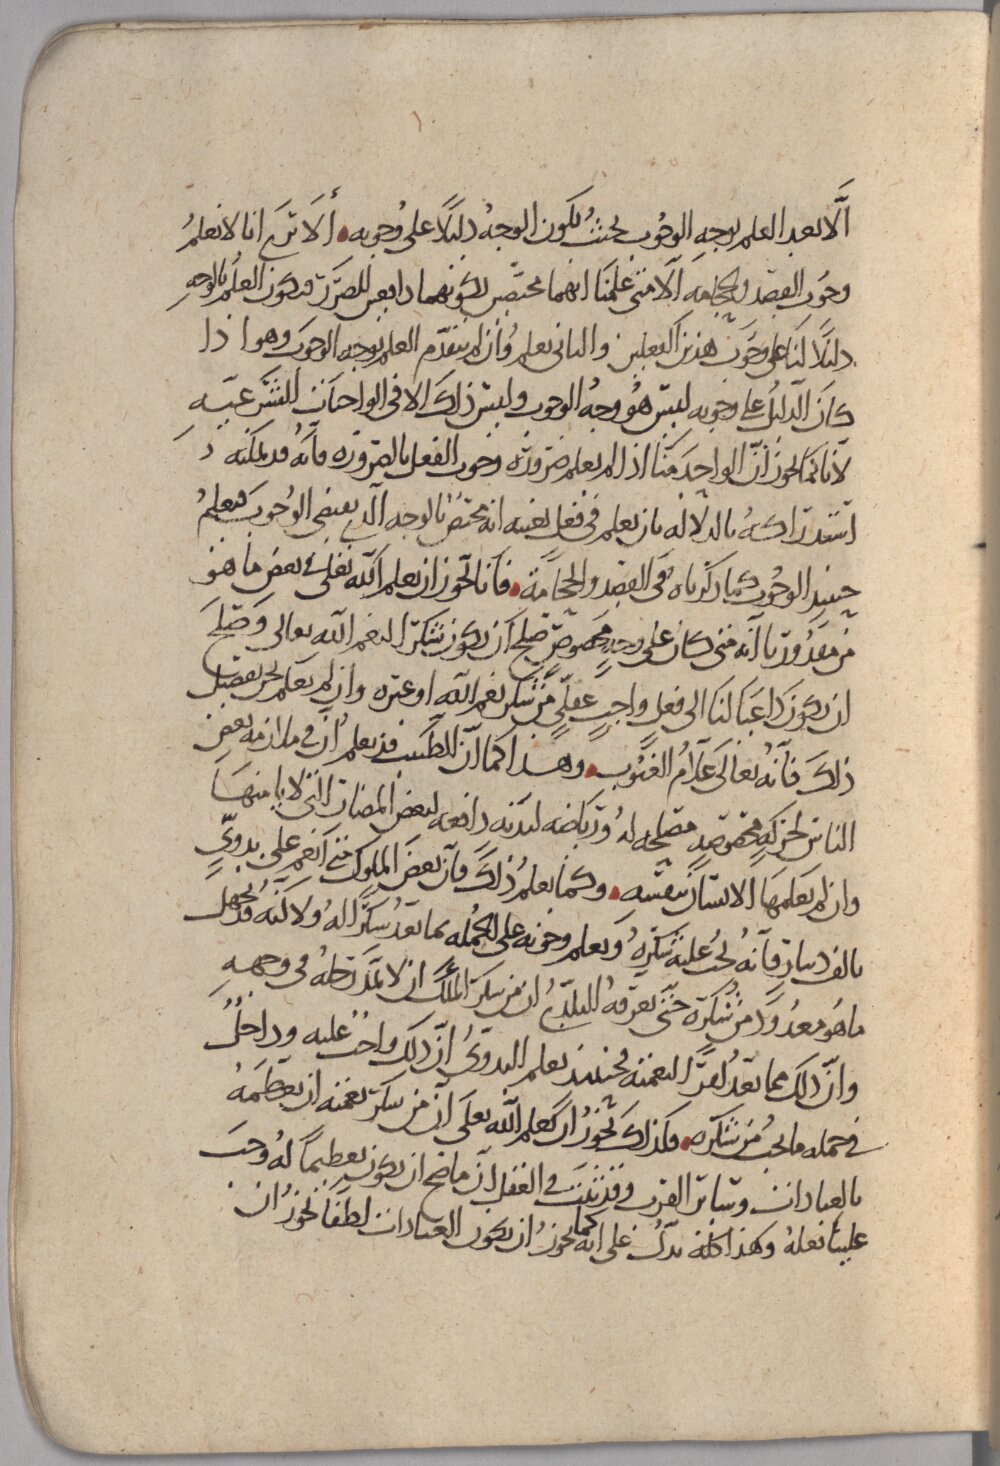 الّا بعد العلم بوجه الوجُوب بحيث يكون الوجهُ دليلًا على وُجوبه. ألا ترى انا لا نعلمُ
وجُوب الفصد والحجامة الّا متى علمنا انهما مختصّين بكونهما دافعين للضرر فيكون العلمُ بالوجهِ
دليلًا لنا على وجُوب هذين الفعلين والثاني نعلمُ وان لم يتقدّم العلم بوجه الوجوب وهو اذا
كان الدّليلُ على وجوبه ليس هُو وجهُ الوجوب وليس ذلك الا في الواجبات الشرعيّه
لأنا كما نجوز أنّ الواحد منّا اذا لم يعلم ضرورة وجوب الفعل بالضرورة فانّهُ قد يمكنه
استدراكهُ بالدلاله بان يعلم في فعل بعينه انه مختصّ بالوجه الّذي يقتضي الوُجوب فيعلمُ
حينيذٍ الوجُوب كما ذكرناه في الفصد والحجامة. فانا نجوز ان يعلم الله تعلى في بعض ما هو
من مقدُورنا أنّه متى كان على وجهٍ مخصوصٍ صلح أن يكون شكرًا لنعم الله تعالى وصلح
ان يكون داعيًا لنا الى فعل واجبٍ عقليٍّ من شكر نعم الله او غيره وان لم نعلم نحن تفصيل
ذلك فانّهُ تعالى علّامُ الغيُوب. وهذا كما انّ الطبيب قد يعلمُ انّ في ملازمة بعض
الناس لحركةٍ مخصوصةٍ مصلحه لهُ ورياضه لبدنه دافعه لبعض المضار التي لا يامنها
وان لم يعلمها الانسان بنفسه. وكما نعلمُ ذلك فان بعض الملوك متى انعم على بدويٍّ
بالف دينار فانّهُ يجبُ عليه شكرهُ ويعلم وجوبه على الجُمله بما يعدّ شكرًا لهُ ولاكنّه قد يجهلُ
ما هُو معدُودٌ من شُكره حتّى يعرّفهُ البلديّ ان من شكر الملك ان لا تمدّ رجلهُ في وجههِ
وانّ ذلك مما يعدّ كفرًا لنعمته فحينيذٍ يعلم البدويُّ انّ ذلك واجبٌ عليه وداخلٌ
في جمله ما يجبُ من شكره. فكذلك نجوّزُ ان يعلم الله تعلى انّ من شكر نعمته ان يعظّمهُ
بالعبادات وسائر القرب وقد ثبت في العقل انّ ما صح ان يكون تعظيمًا لهُ وجب
علينا فعلهُ وهذا كلّه يدلُّ على انه كما نجوزُ ان يكون العبادات لطفًا نجوزُ ان